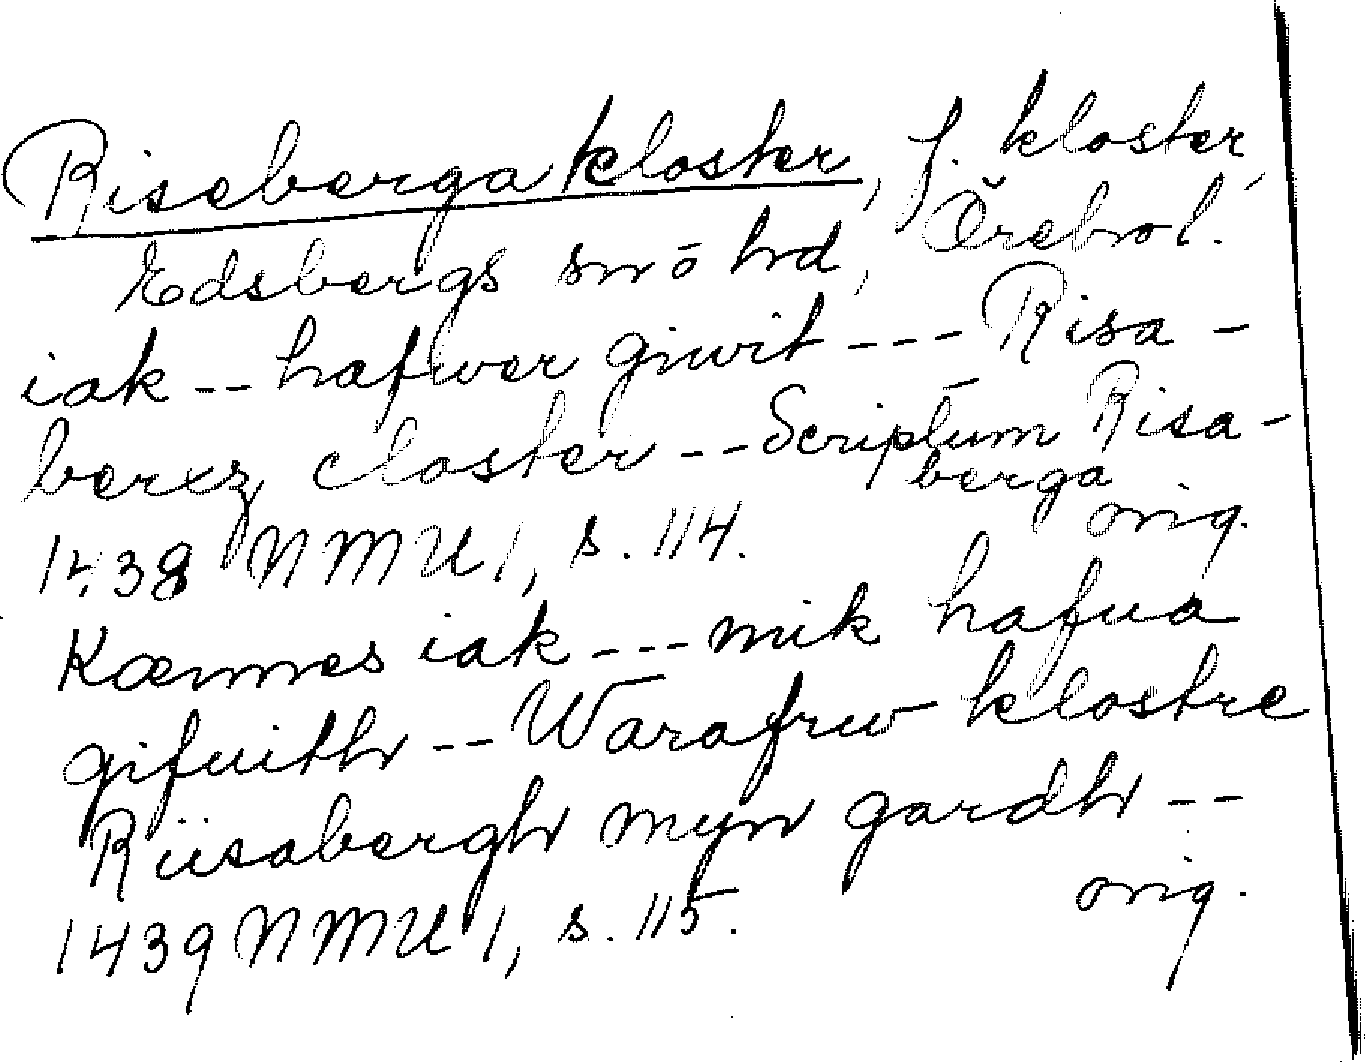 Riseberga kloster, f. kloster,
Edsbergs sn o hd, Örebro l.
iak -- hafwer giwit --- Risa-
berxz closter -- Scriptum Risa-
berga
1438 NMU 1, s. 114. orig.
Kænnes iak --- mik hafua
gifuith -- Warafrw klostre
Riisabergh myn gardh --
1439 NMU 1, s. 115. orig.